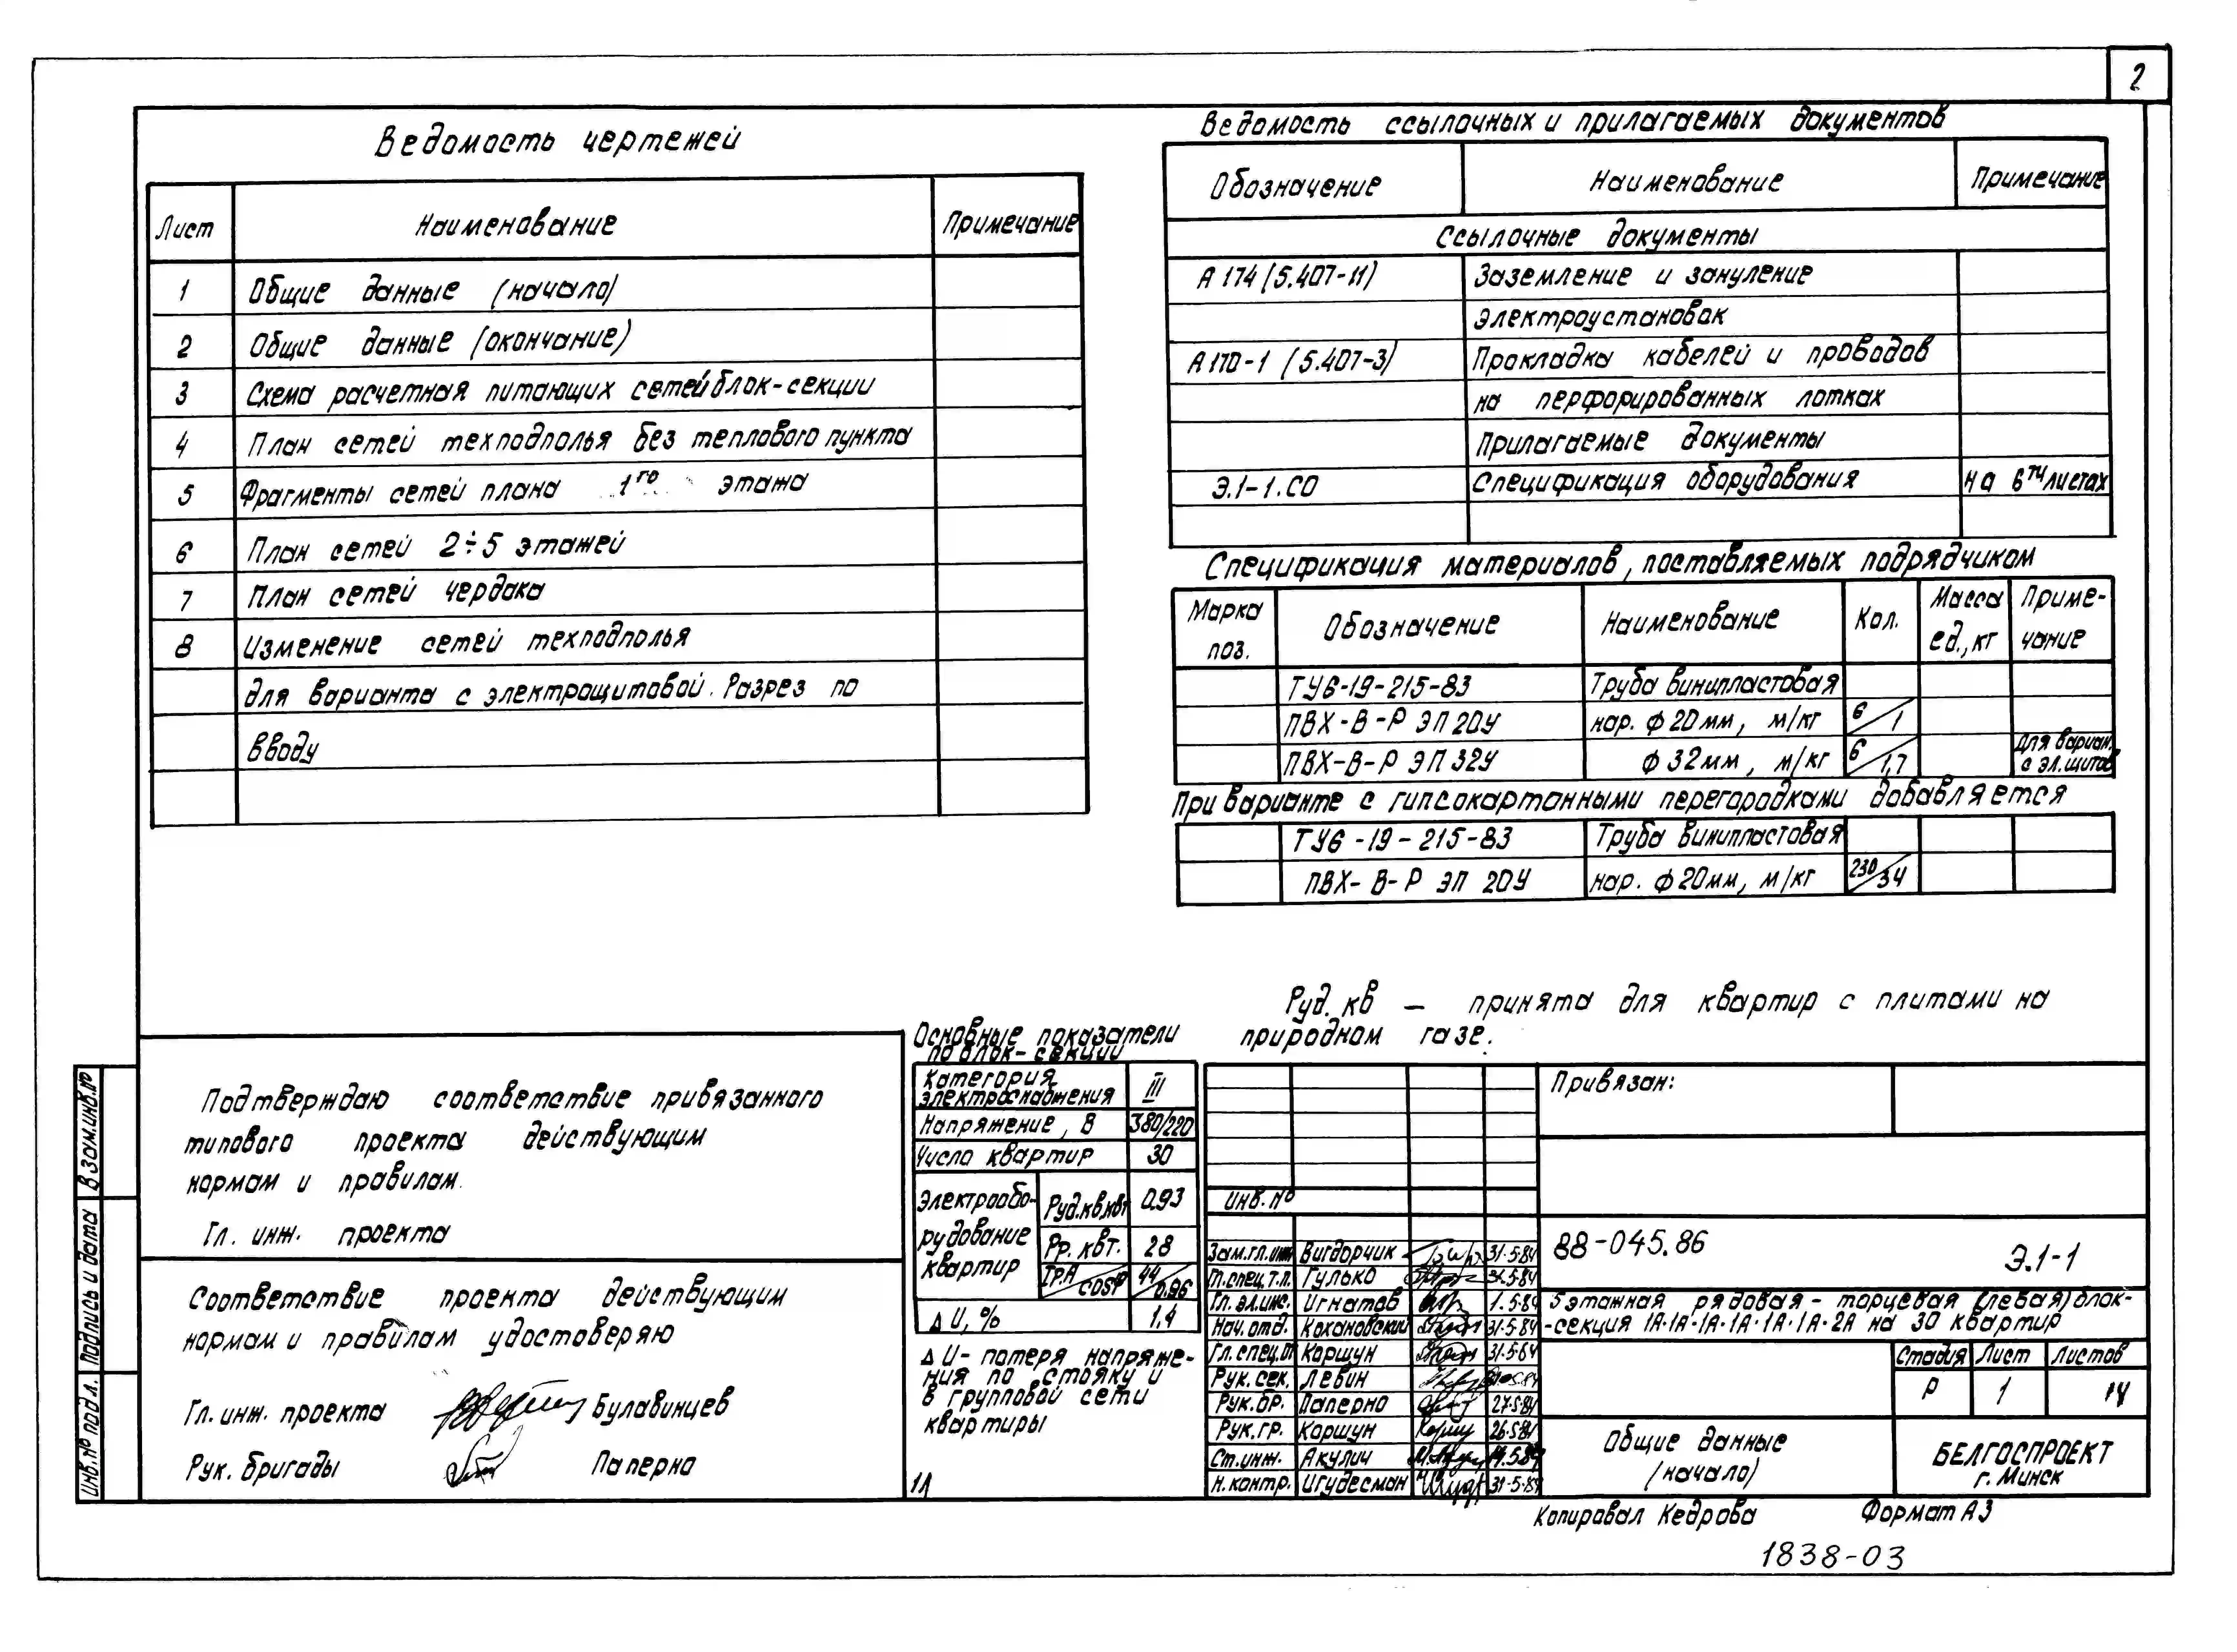 2
Ведомость чертежей
Лист Наименование Примечание
1 Общие данные (начало)
2 Общие данные (окончание)
3 Схема расчетная питающих сетей блок-секции
4 План сетей техподполья без теплового пункта
5 Фрагменты сетей плана 1го этажа
6 План сетей 2÷5 этажей
7 План сетей чердака
8 Изменение сетей техподполья
для варианта с электрощитовой. Разрез по
вводу
Ведомость ссылочных и прилагаемых документов
Обозначение Наименование Примечание
Ссылочные документы
А 174 (5.407-11) Заземление и зануление
электроустановок
А 170-1 (5.407-3) Прокладка кабелей и проводов
на перфорированных лотках
Прилагаемые документы
Э.1-1.СО Спецификация оборудования на 6ти листах
Спецификация материалов, поставляемых подрядчиком
Марка поз. Обозначение Наименование Кол. Масса ед., кг Примечание
ТУ6-19-215-83 Труба винипластовая
ПВХ-В-Р ЭП 20У нар. ф 20мм, м/кг 6/1
ПВХ-В-Р ЭП 32У ф 32мм, м/кг 6/1,7 Для вариан. с эл. щитов
При варианте с гипсокартонными перегородками добавляется
ТУ6-19-215-83 Труба винипластовая
ПВХ-В-Р ЭП 20У нар. ф 20мм, м/кг 230/34
Руд. кв — принята для квартир с плитами на
природном газе.
Подтверждаю соответствие привязанного
типового проекта действующим
нормам и правилам.
Гл. инж. проекта
Соответствие проекта действующим
нормам и правилам удостоверяю
Гл. инж. проекта Булавинцев
Рук. бригады Паперно
Основные показатели
по блок-секции
Категория электроснабжения III
Напряжение, В 380/220
Число квартир 30
Электрооборудование квартир Руд.кв.квт 0.93
Рр. квт. 28
Iр.А/cosφ 44/0.96
Δ U, % 1,4
Δ U - потеря напряже-
ния по стояку и
в групповой сети
квартиры
1Л
инв. №
Зам.гл.инж Вигдорчик 31.5.84
Гл.спец.т.п. Гулько 31.5.84
Гл. эл.инс. Игнатов 1.5.84
Нач. отд. Кохановский 31.5.84
Гл. спец. Коршун 31.5.84
Рук. сек. Левин
Рук. бр. Паперно 27.5.84
Рук. гр. Коршун 26.5.84
Ст. инж. Акулич
Н. контр. Игудесман 31.5.84
Привязан:
88-045.86 Э.1-1
5 этажная рядовая - торцевая (левая) блок-
-секция 1А·1А·1А·1А·1А·1А·2А на 30 квартир
Стадия Лист Листов
Р 1 14
Общие данные
(начало)
БЕЛГОСПРОЕКТ
г. Минск
Копировал Кедрова Формат А3
1838-03
Инв.№ подл. Подпись и дата Взам.инв.№